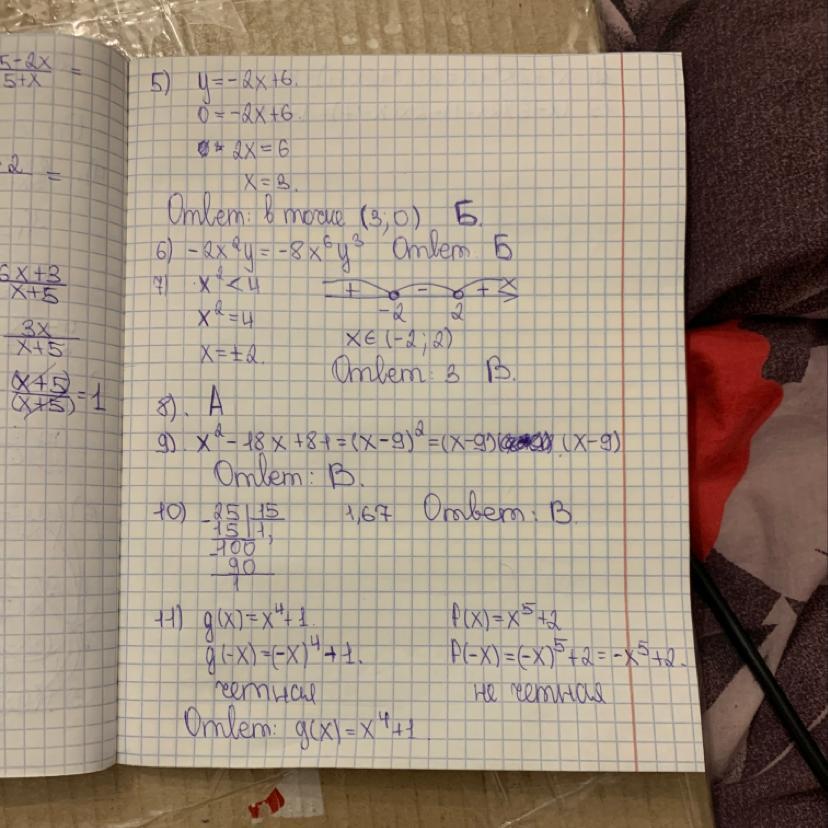 5-2x
5+x =
-2 =
6x+3
x+5
3x
x+5
(x+5)
(x+5) = 1
5) y=-2x+6.
0=-2x+6
2x=6
x=3.
Ответ: в точке (3;0) Б.
6) -2x²y=-8x⁶y³ Ответ Б
7) x²<4
+ - + x
-2 2
x²=4
x∈(-2;2)
x=±2.
Ответ: 3 В.
8). А
9). x²-18x+81=(x-9)²=(x-9)(x-9)
Ответ: В.
10) -25 | 15
15 | 1,
-100
90
1
1,67 Ответ: В.
11) g(x)=x⁴+1. p(x)=x⁵+2
g(-x)=(-x)⁴+1. p(-x)=(-x)⁵+2=-x⁵+2.
четная не четная
Ответ: g(x)=x⁴+1.